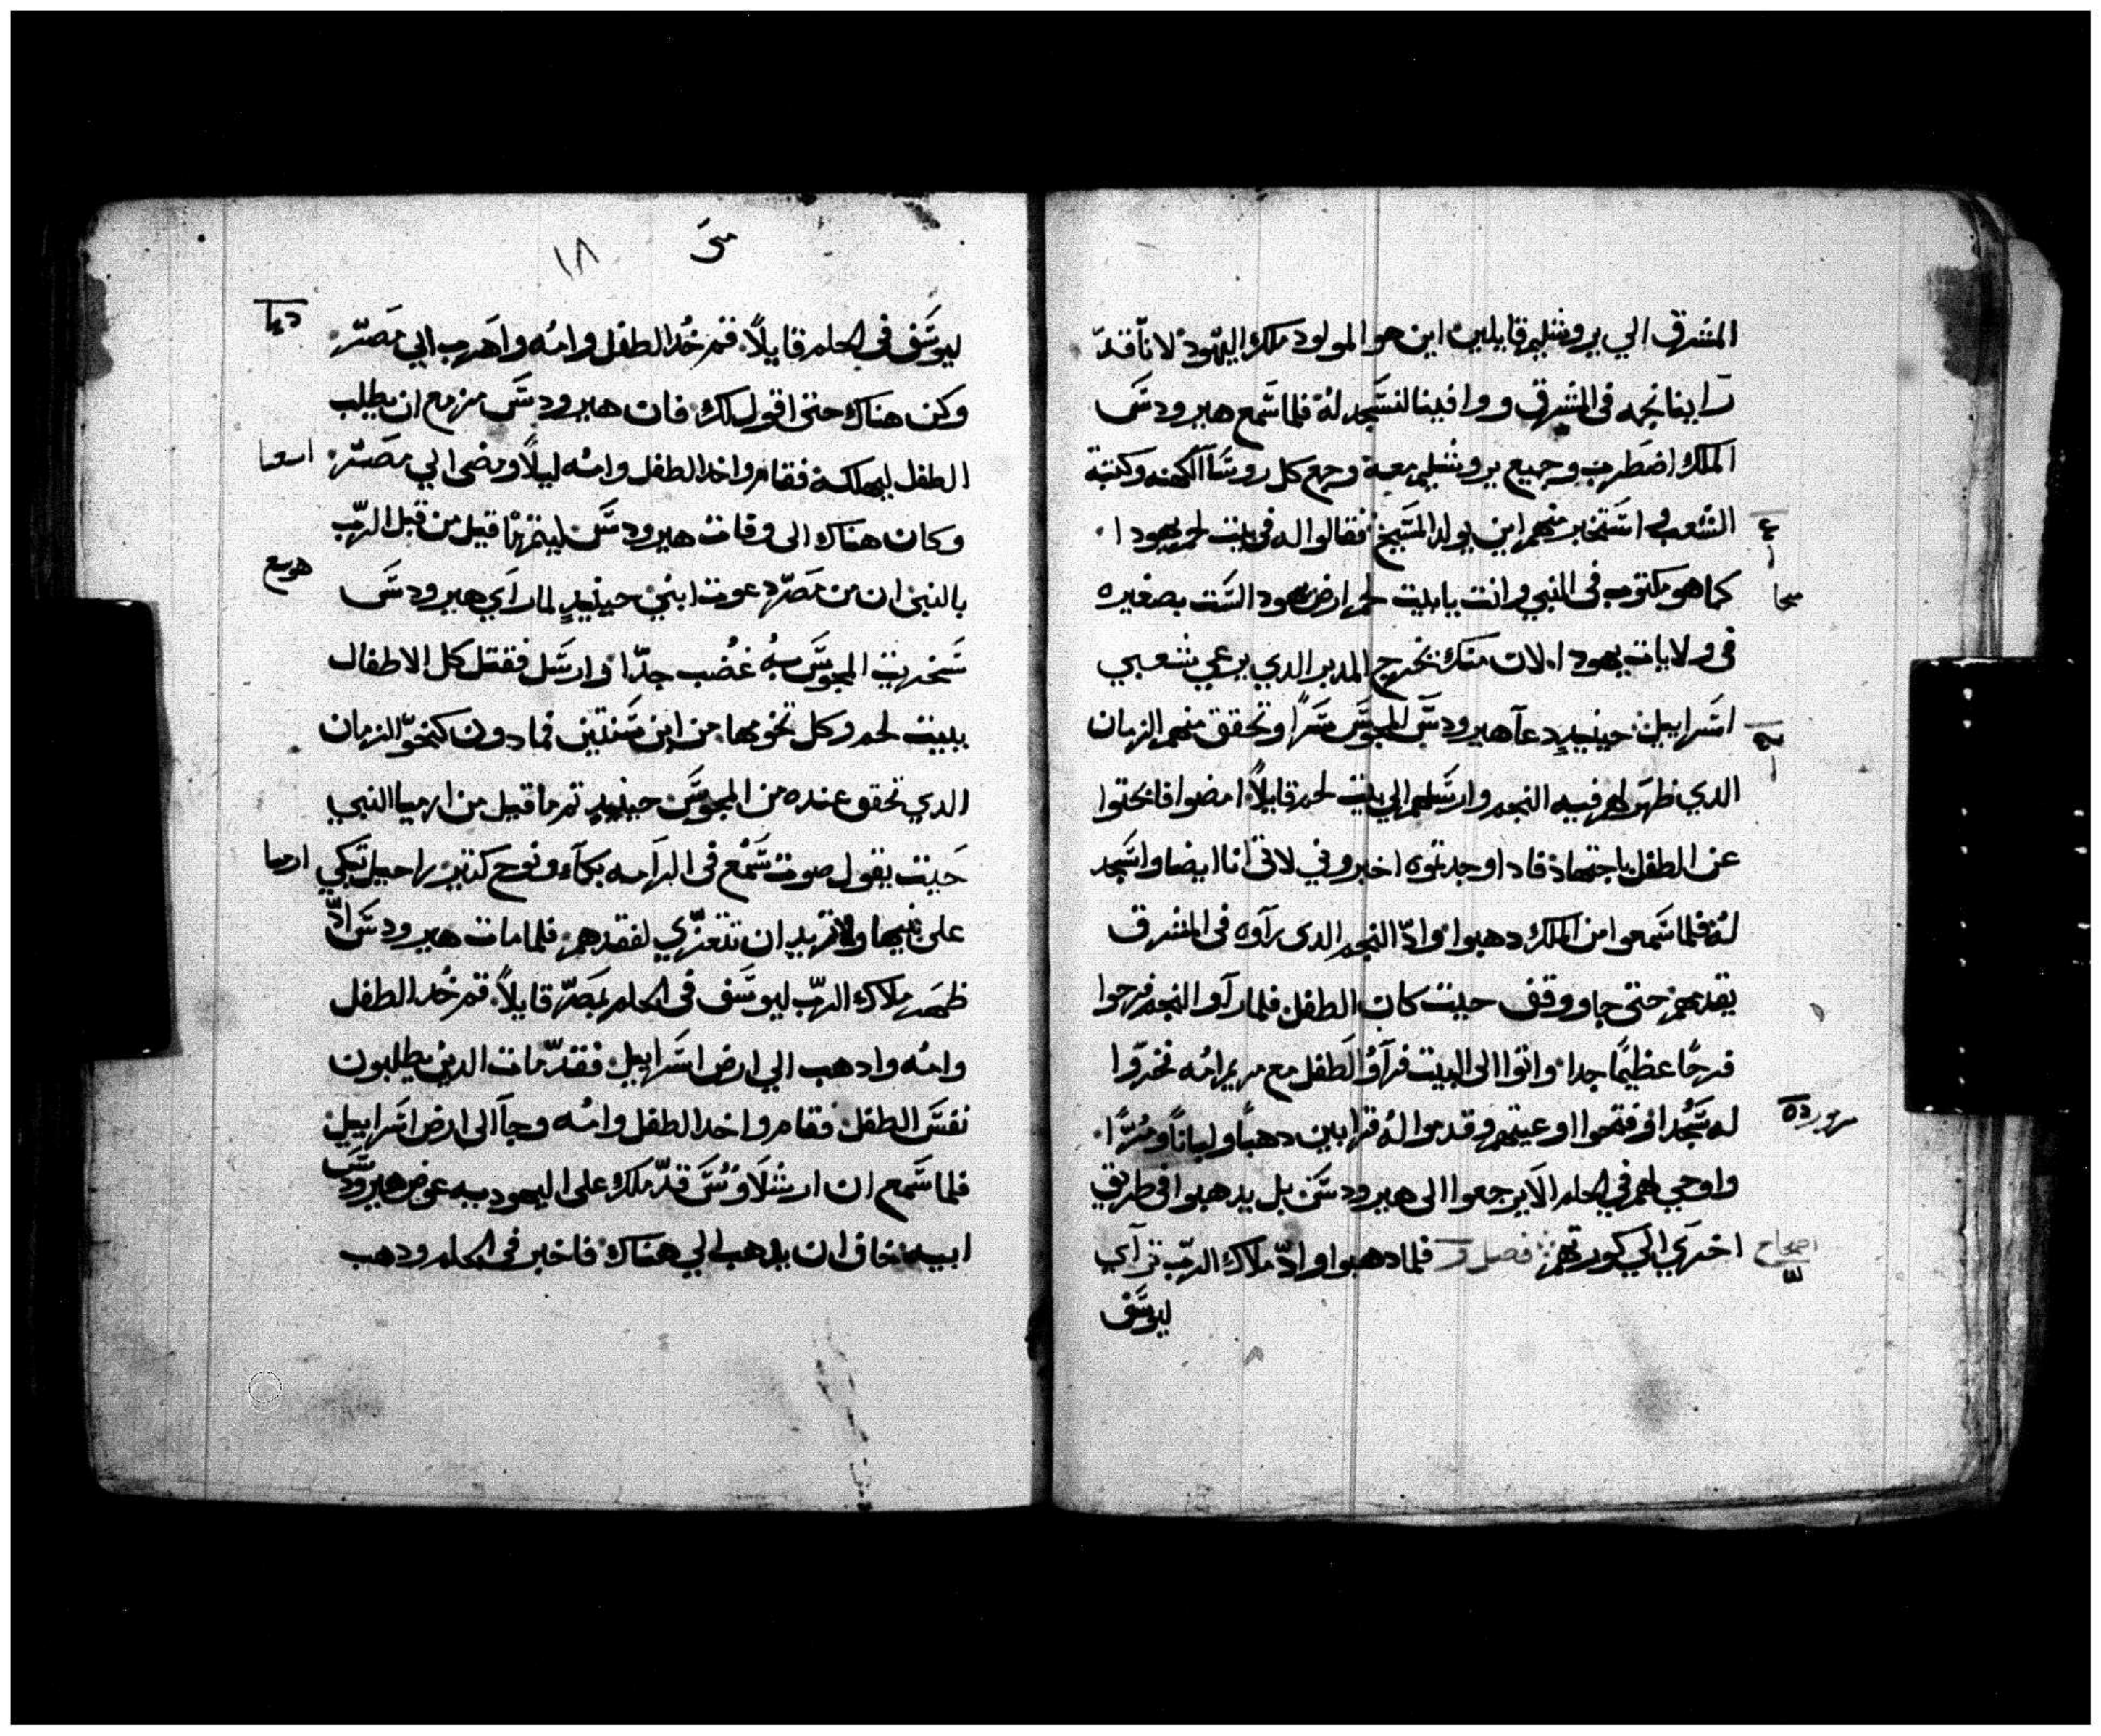 المشرق الي يروشليم قايلين اين هو المولود ملك اليهود لانا قد
راينا نجمه في المشرق ووافينا لنسجد له فلما سمع هيرودس
الملك اضطرب وجميع يروشليم معه وجمع كل روسا الكهنه وكتبة
الشعب واستخبر منهم اين يولد المسيح فقالوا له في بيت لحم يهودا
كما هو مكتوب في النبي وانت يا بيت لحم ارض يهودا لست بصغيره
ميخا
في ولايات يهودا لان منك يخرج المدبر الدي يرعي شعبي
اسراييل حينيدٍ دعا هيرودس المجوس سرًا وتحقق منهم الزمان
الدي ظهر لهم فيه النجم وارسلهم الي بيت لحم قايلاً امضوا فابحتوا
عن الطفل باجتهاد فادا وجدتوه اخبروني لاتي انا ايضا واسجد
له فلما سمعوا من الملك دهبوا وادّ النجم الدي رآوه في المشرق
يقدمهم حتي جا ووقف حيت كان الطفل فلما رآوا النجم فرحوا
فرحًا عظيمًا جدا واتوا الي البيت فرآوُ الطفل مع مريم امُه فخروا
له سُجدا وفتحوا اوعيتهم وقدموا له قرابين دهباً ولباناً ومُرًا
واوحي لهم في الحلم الا يرجعوا الي هيرودس بل يدهبوا في طريق
اخري الي كورتهم فصل و فلما دهبوا وادّ ملاك الرب ترآي
اصحاح
ليوسف
متي
١٨
ليوسف في الحلم قايلاً قم خُد الطفل وامُه واهرب الي مصر
وكن هناك حتي اقول لك فان هيرودس مزمع ان يطلب
الطفل ليهلكه فقام واخد الطفل وامُه ليلاً ومضي الي مصر
اسعيا
وكان هناك الي وفات هيرودس ليتم ما قيل من قبل الرب
هوسع
بالنبي ان من مصر دعوت ابني حينيدٍ لما راي هيرودس
سخريت المجوس به غضُب جدّا وارسل فقتل كل الاطفال
ببيت لحم وكل تخومها من ابن سنتين فما دون كنحو الزمان
الدي تحقق عنده من المجوس حينيدٍ تم ما قيل من ارميا النبي
حيت يقول صوت سُمع في الرامه بكآء ونوح كتير راحيل تبكي
ارميا
علي بنيها ولا تريد ان تتعزي لفقدهم فلما مات هيرودس ادّ
ظهر ملاك الرب ليوسف في الحلم بمصر قايلاً قم خُد الطفل
وامُه وادهب الي ارض اسراييل فقد مات الدين يطلبون
نفس الطفل فقام واخد الطفل وامُه وجآ الي ارض اسراييل
فلما سمع ان ارشلاوُس قد ملك علي اليهوديه عوض هيرودس
ابيه خاف ان يدهب الي هناك فاخبر في الحلم ودهب